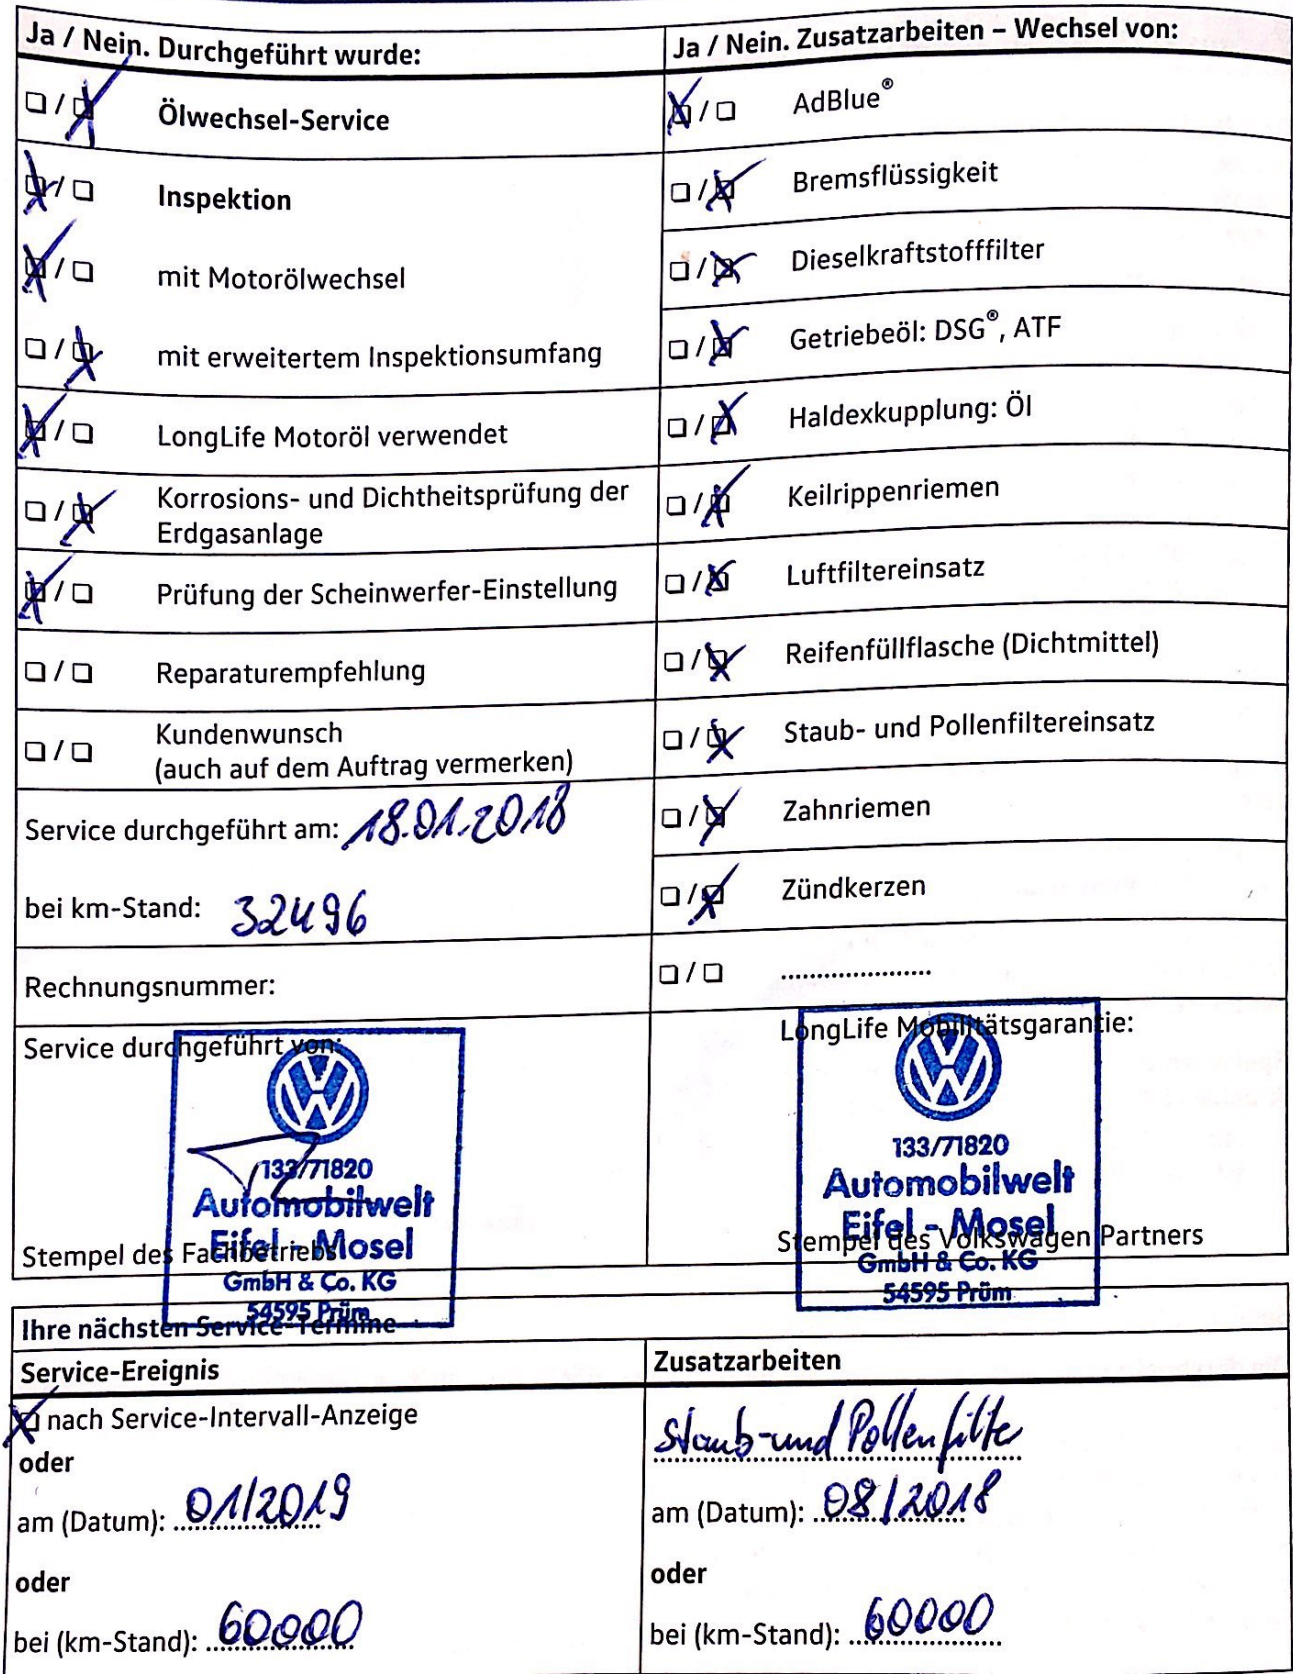 Ja / Nein. Durchgeführt wurde:
Ölwechsel-Service
Inspektion
mit Motorölwechsel
mit erweitertem Inspektionsumfang
LongLife Motoröl verwendet
Korrosions- und Dichtheitsprüfung der
Erdgasanlage
Prüfung der Scheinwerfer-Einstellung
Reparaturempfehlung
Kundenwunsch
(auch auf dem Auftrag vermerken)
Service durchgeführt am: 18.01.2018
bei km-Stand: 32496
Rechnungsnummer:
Service durchgeführt von:
133/71820
Automobilwelt
Eifel - Mosel
GmbH & Co. KG
54595 Prüm
Stempel des Fachbetriebs
Ja / Nein. Zusatzarbeiten – Wechsel von:
AdBlue®
Bremsflüssigkeit
Dieselkraftstofffilter
Getriebeöl: DSG®, ATF
Haldexkupplung: Öl
Keilrippenriemen
Luftfiltereinsatz
Reifenfüllflasche (Dichtmittel)
Staub- und Pollenfiltereinsatz
Zahnriemen
Zündkerzen
LongLife Mobilitätsgarantie:
133/71820
Automobilwelt
Eifel - Mosel
GmbH & Co. KG
54595 Prüm
Stempel des Volkswagen Partners
Ihre nächsten Service-Termine
Service-Ereignis
nach Service-Intervall-Anzeige
oder
am (Datum): 01/2019
oder
bei (km-Stand): 60000
Zusatzarbeiten
Staub-und Pollenfilte
am (Datum): 08/2018
oder
bei (km-Stand): 60000